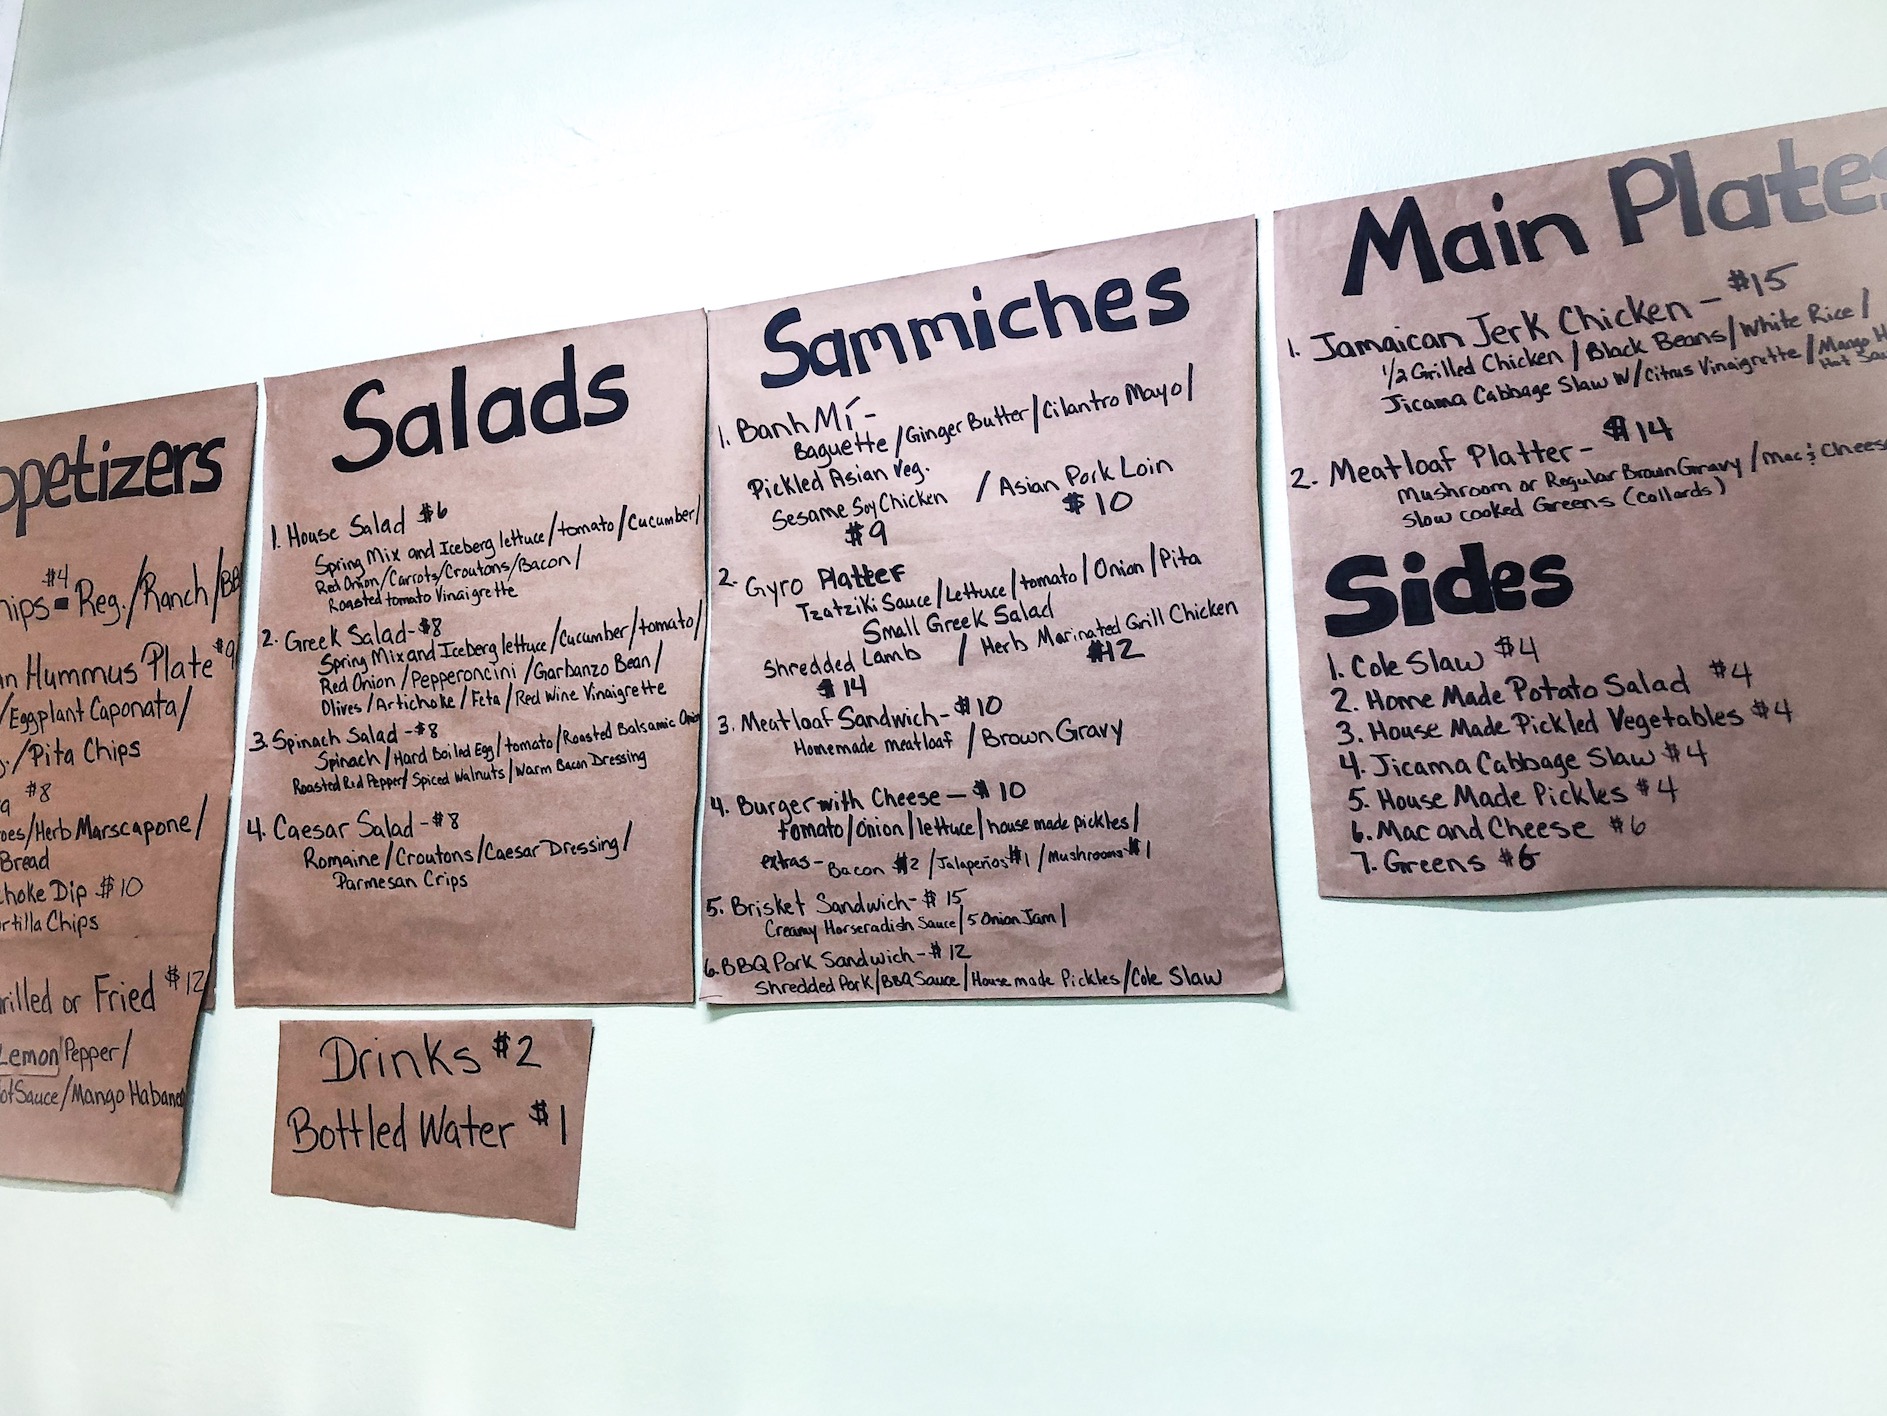 ppetizers
$4
hips - Reg./Ranch/BB
n Hummus Plate $9
/Eggplant Caponata/
/Pita Chips
$8
oes/Herb Marscapone/
Bread
choke Dip $10
rtilla Chips
rilled or Fried $12
Lemon Pepper/
otSauce/Mango Habane
Salads
1. House Salad $6
Spring Mix and Iceberg lettuce/tomato/Cucumber/
Red Onion/Carrots/Croutons/Bacon/
Roasted tomato Vinaigrette
2. Greek Salad-$8
Spring Mix and Iceberg lettuce/Cucumber/tomato/
Red Onion/Pepperoncini/Garbanzo Bean/
Olives/Artichoke/Feta/Red Wine Vinaigrette
3. Spinach Salad-$8
Spinach/Hard Boiled Egg/tomato/Roasted Balsamic Onion
Roasted Red Pepper/Spiced Walnuts/Warm Bacon Dressing
4. Caesar Salad-$8
Romaine/Croutons/Caesar Dressing/
Parmesan Crips
Drinks $2
Bottled Water $1
Sammiches
1. Banh Mí-
Baguette/Ginger Butter/Cilantro Mayo/
Pickled Asian Veg.
Sesame Soy Chicken / Asian Pork Loin
$9 $10
2. Gyro Platter
Tzatziki Sauce/Lettuce/tomato/Onion/Pita
Small Greek Salad
Shredded Lamb / Herb Marinated Grill Chicken
$14 $12
3. Meatloaf Sandwich-$10
Homemade meatloaf / Brown Gravy
4. Burger with Cheese - $10
tomato/Onion/lettuce/house made pickles/
extras-Bacon $2/Jalapeños $1/Mushrooms $1
5. Brisket Sandwich-$15
Creamy Horseradish Sauce/5 Onion Jam/
6. BBQ Pork Sandwich-$12
Shredded Pork/BBQ Sauce/House made Pickles/Cole Slaw
Main Plates
1. Jamaican Jerk Chicken-$15
1/2 Grilled Chicken/Black Beans/White Rice/
Jicama Cabbage Slaw W/Citrus Vinaigrette/Mango H
Hot Sau
2. Meatloaf Platter-$14
Mushroom or Regular Brown Gravy/Mac & Cheese
Slow cooked Greens (Collards)
Sides
1. Cole Slaw $4
2. Home Made Potato Salad $4
3. House Made Pickled Vegetables $4
4. Jicama Cabbage Slaw $4
5. House Made Pickles $4
6. Mac and Cheese $6
7. Greens $6